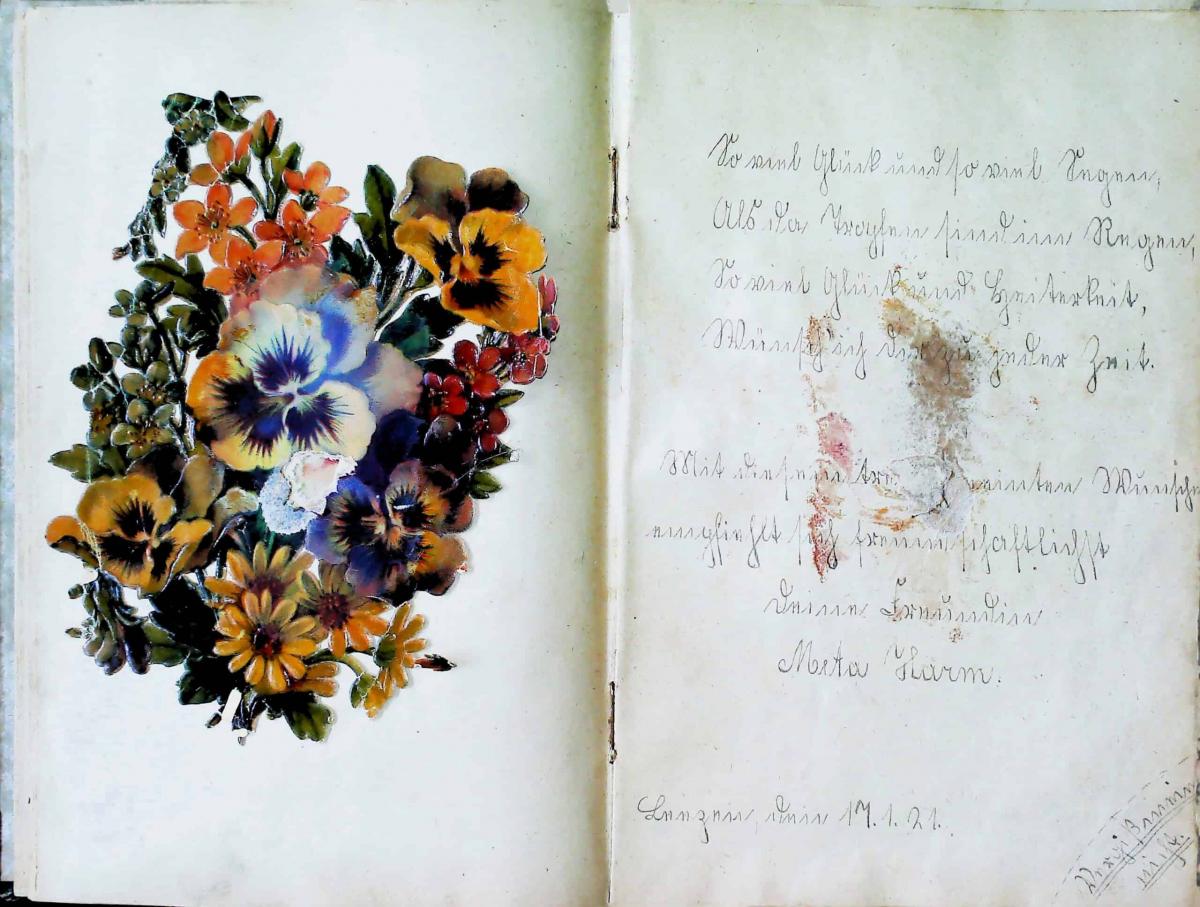 So viel Glück und so viel Segen,
Als da Tropfen sind im Regen,
So viel Glück und Heiterkeit,
Wünsch ich dir zu jeder Zeit.
Mit diesem einten Wunsche
empfiehlt sich freundschaftlichst
Deine Freundin
Meta Harm.
Lenzen, den 17.1.21.
Vergißmein
nicht.